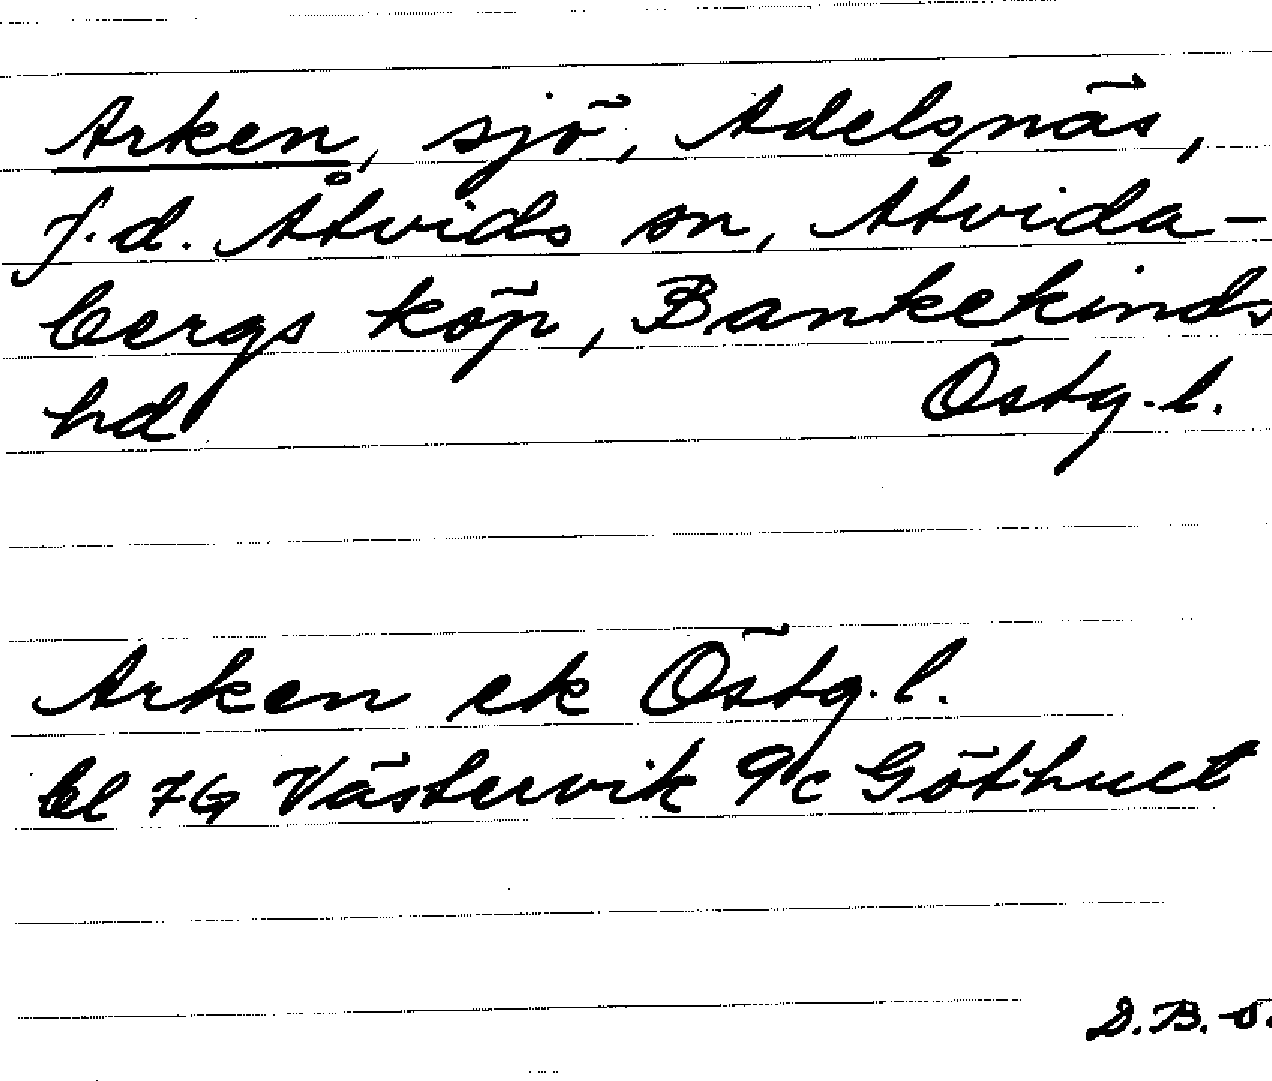 Arken, sjö, Adelsnäs,
f.d. Åtvids sn, Åtvida-
bergs köp, Bankekinds
hd Östg.l.
Arken ek Östg.l.
bl 7G Västervik 9c Göthult
D.B.-O.